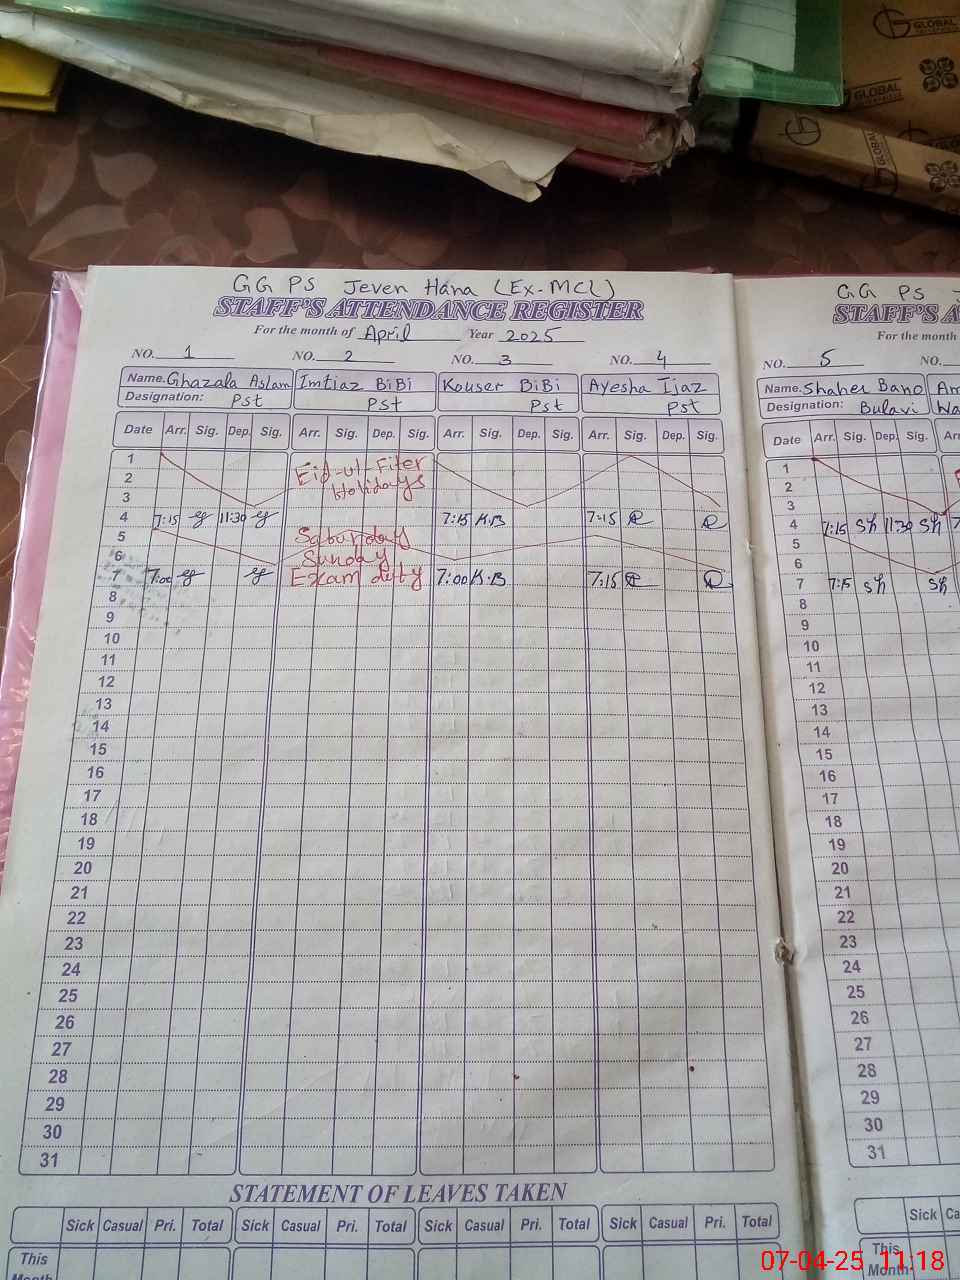 GLOBAL
GLOBAL
GLOBAL
GG PS Jeven Hana (Ex-MCL)
STAFF'S ATTENDANCE REGISTER
For the month of April Year 2025
NO. 1 NO. 2 NO. 3 NO. 4
Name. Ghazala Aslam Imtiaz BiBi Kouser BiBi Ayesha Ijaz
Designation: Pst Pst Pst Pst
Date Arr. Sig. Dep. Sig. Arr. Sig. Dep. Sig. Arr. Sig. Dep. Sig. Arr. Sig. Dep. Sig.
1 Eid-ul-Fiter
2 Holidays
3
4 7:15 11:30 7:15 K.B 7:15
5 Saturday
6 Sunday
7 7:00 Exam duty 7:00 K.B 7:15
8
9
10
11
12
13
14
15
16
17
18
19
20
21
22
23
24
25
26
27
28
29
30
31
STATEMENT OF LEAVES TAKEN
Sick Casual Pri. Total Sick Casual Pri. Total Sick Casual Pri. Total Sick Casual Pri. Total
This
Month
GG PS J
STAFF'S A
For the month
NO. 5 NO.
Name. Shaher Bano Am
Designation: Bulavi Wa
Date Arr. Sig. Dep. Sig. Arr
1
2
3
4 7:15 Sh 11:30 Sh 7
5
6
7 7:15 Sh Sh
8
9
10
11
12
13
14
15
16
17
18
19
20
21
22
23
24
25
26
27
28
29
30
31
Sick Ca
This
Month:
07-04-25 11:18